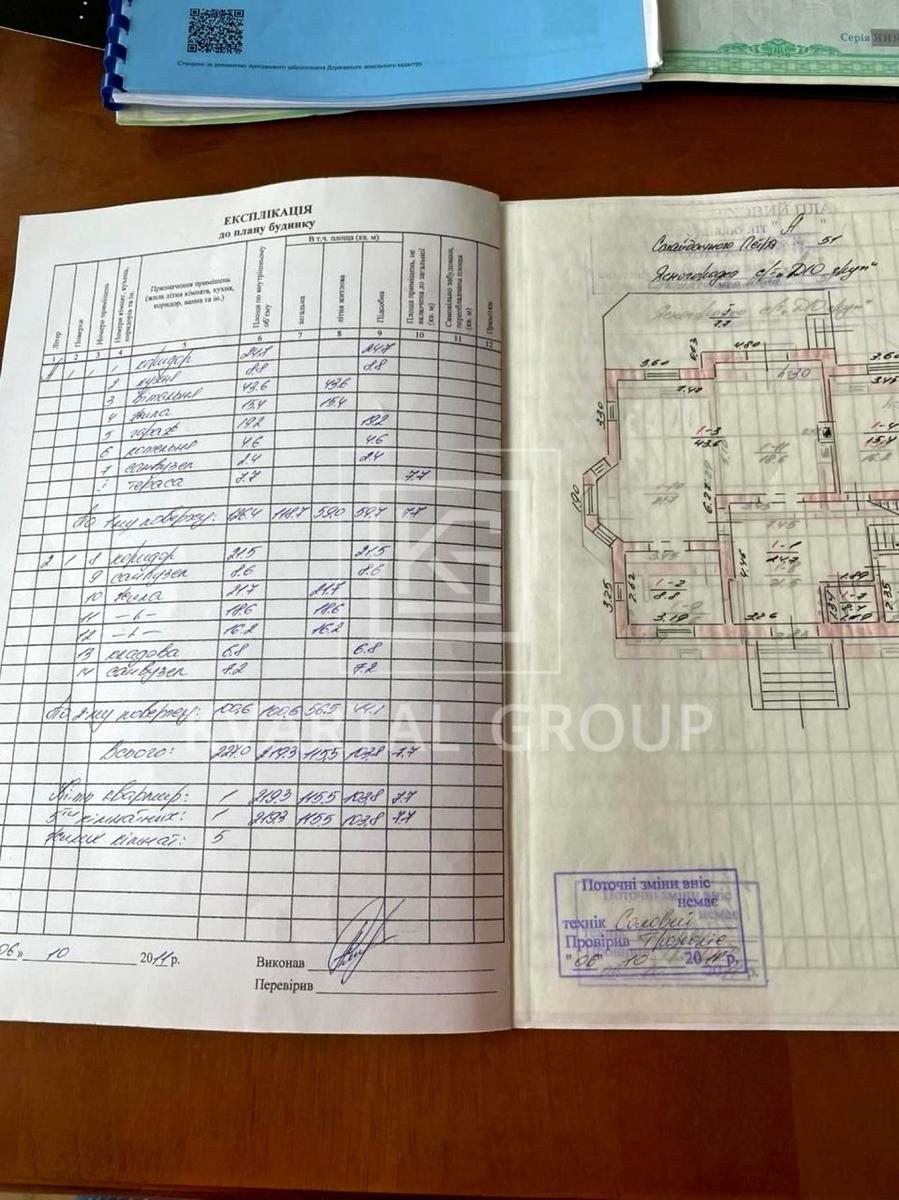 Створено за допомогою програмного забезпечення Державного земельного кадастру
Серія ЯНЯ
ЕКСПЛІКАЦІЯ
до плану будинку
Літер
Поверхи
Номери приміщень
Номери кімнат, кухонь, коридорів та ін.
Призначення приміщень (жила літня кімната, кухня, коридор, ванна та ін.)
Площа по внутрішньому об'єму
В т.ч. площа (кв. м)
загальна
літня житлова
Підсобна
Площа приміщень, не включена до загальної (кв. м)
Самовільно забудовані, переобладнана площа (кв. м)
Примітки
1 2 3 4 5 6 7 8 9 10 11 12
1 1 1 коридор 24.7 24.7
2 кухня 8.8 8.8
3 вітальня 43.6 43.6
4 жила 15.4 15.4
5 гараж 19.2 19.2
6 котельня 4.6 4.6
7 санвузел 2.4 2.4
I тераса 7.7 7.7
По 1-му поверху: 126.4 118.7 59.0 59.7 7.7
2 1 8 коридор 21.5 21.5
9 санвузел 8.6 8.6
10 жила 21.7 21.7
11 –"– 18.6 18.6
12 –"– 16.2 16.2
13 кладова 6.8 6.8
14 санвузел 7.2 7.2
По 2-му поверху: 100.6 100.6 56.5 44.1
Всього: 227.0 219.3 115.5 103.8 7.7
квартир: 1 219.3 115.5 103.8 7.7
5ти кімнатних: 1 219.3 115.5 103.8 7.7
Жилих кімнат: 5
06» 10 2011 р.
Виконав
Перевірив
"А"
Сагайдачного Петра 51
Ясногородка
I
7.7
4.80
0.63
3.60
3.60
7.49
4.30
3.45
3.30
1-3
43.6
1-11
18.6
1-4
15.4
16.2
1.90
1-10
21.7
6.27
3.45
7.45
3.75
4.45
1-1
24.7
3.25
2.62
1-2
8.8
3.19
3.26
1.89
2.35
KVARTAL GROUP
Поточні зміни вніс
немає
технік Соловей
Провірив
"06" 10 2011 р.